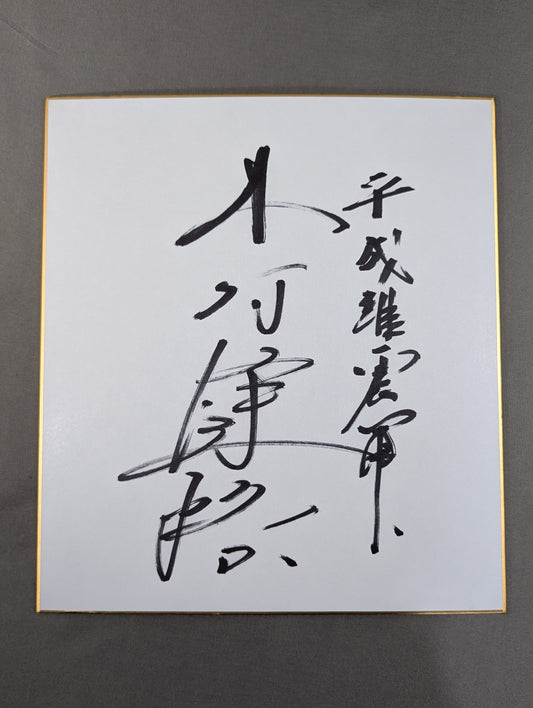 平成維震軍
木村健悟